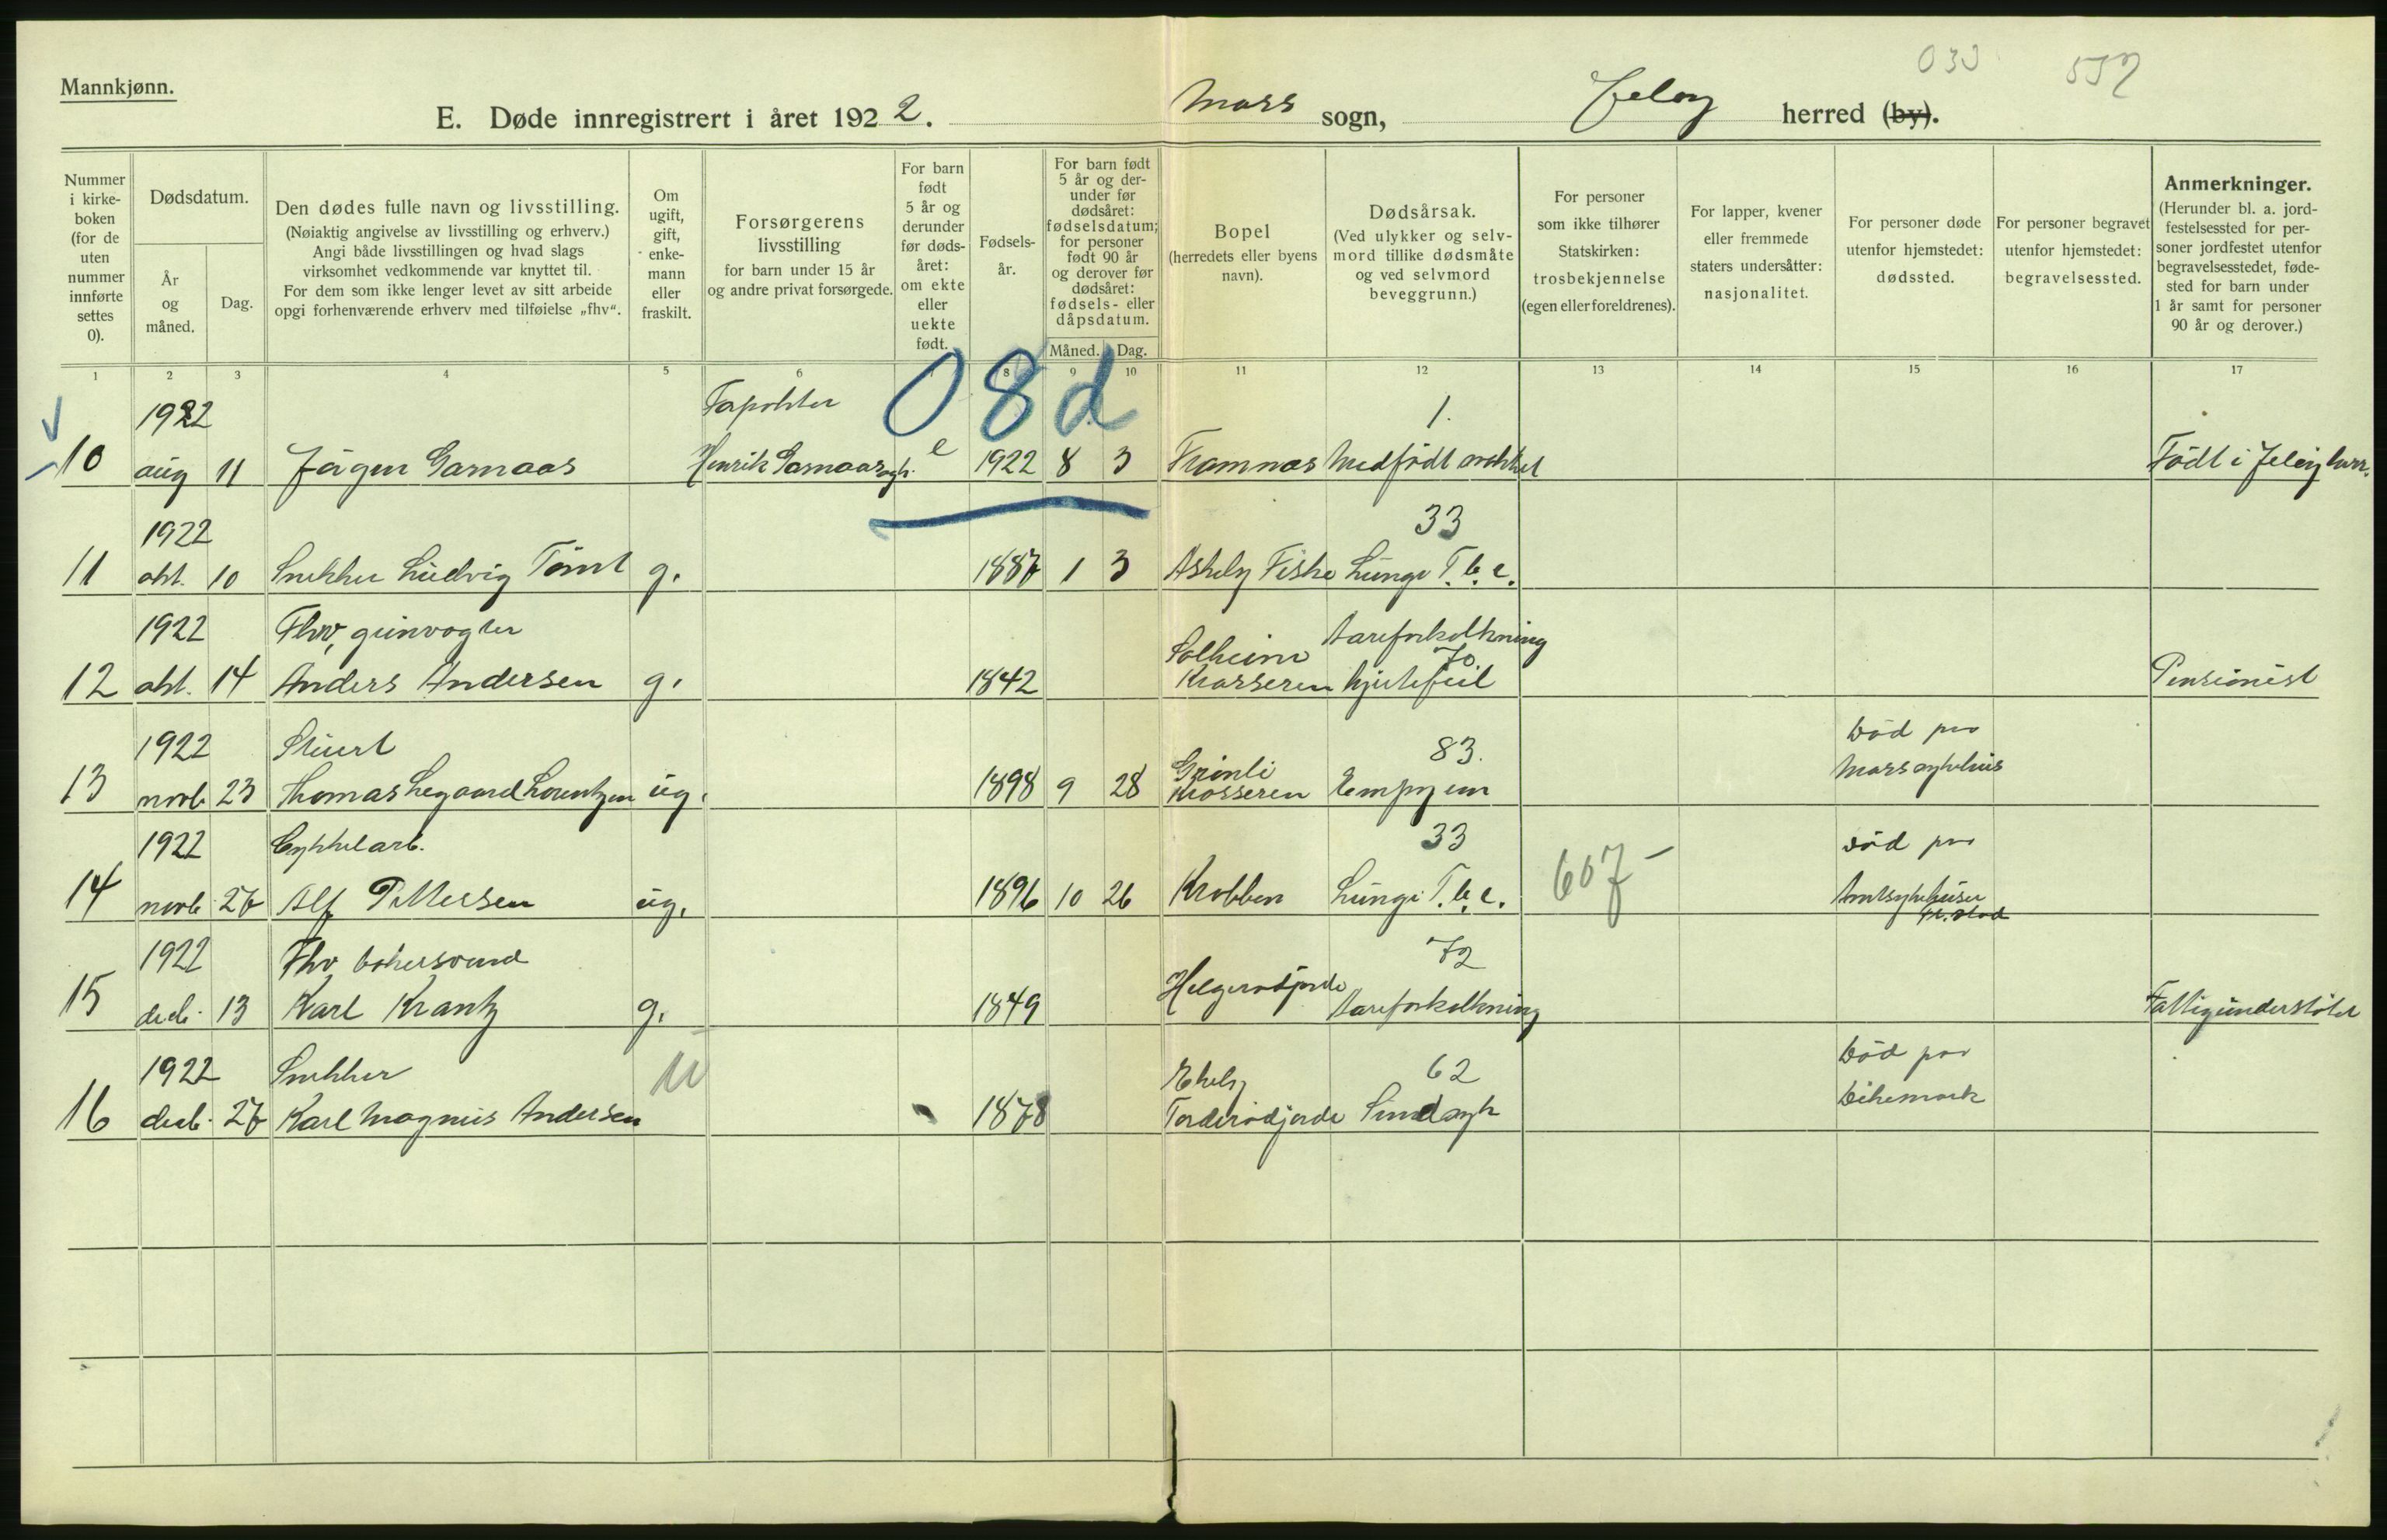 033 552
Mannkjønn.
E. Døde innregistrert i året 1922. Moss sogn, Jeløy herred (by).
Nummer i kirkeboken (for de uten nummer innførte settes 0).
Dødsdatum.
År og måned.
Dag.
Den dødes fulle navn og livsstilling.
(Nøiaktig angivelse av livsstilling og erhverv.)
Angi både livsstillingen og hvad slags
virksomhet vedkommende var knyttet til.
For dem som ikke lenger levet av sitt arbeide
opgi forhenværende erhverv med tilføielse „fhv“.
Om ugift, gift, enkemann eller fraskilt.
Forsørgerens livsstilling
for barn under 15 år
og andre privat forsørgede.
For barn født 5 år og derunder før dødsåret: om ekte eller uekte født.
Fødselsår.
For barn født 5 år og derunder før dødsåret: fødselsdatum; for personer født 90 år og derover før dødsåret: fødsels- eller dåpsdatum.
Måned. Dag.
Bopel
(herredets eller byens navn).
Dødsårsak.
(Ved ulykker og selvmord tillike dødsmåte og ved selvmord beveggrunn.)
For personer som ikke tilhører Statskirken: trosbekjennelse (egen eller foreldrenes).
For lapper, kvener eller fremmede staters undersåtter: nasjonalitet.
For personer døde utenfor hjemstedet: dødssted.
For personer begravet utenfor hjemstedet: begravelsessted.
Anmerkninger.
(Herunder bl. a. jordfestelsessted for personer jordfestet utenfor begravelsesstedet, fødested for barn under 1 år samt for personer 90 år og derover.)
1 2 3 4 5 6 7 8 9 10 11 12 13 14 15 16 17
08d
1922 1.
10 aug 11 Jørgen Garnaas Henrik Garnaas e 1922 8 3 Framnæs Medfødt Født i Jeløy
1922 33
11 okt. 10 Snekker Ludvig Tømt g. 1887 1 3 Askely Fiske Lunge T.b.c.
1922 Fhv. Aareforkalkning
Solheim 70.
12 okt. 14 Anders Andersen g. 1842 Krosseren hjertefeil Pensionist
1922 Stuert 83. Død paa
Grønli Moss sykehus
13 novb 23 Thomas Legaard Lorentzen ug. 1898 9 28 Krosseren Empyem
1922 Cykkelarb. 33 død paa
14 novb. 27 Alf Pettersen ug. 1896 10 26 Krobben Lunge T.b.c. 607- Amtsykehuset
Fr.stad
1922 Fhv bøkersvend 72
15 decb. 13 Karl Krantz g. 1849 Helgerødjorde Aareforkalkning Fattigunderstøtet
1922 Snekker U Ekely 62 Død paa
16 decb. 27 Karl Magnus Andersen 1878 Torderødjorde Sindsyk Dikemark